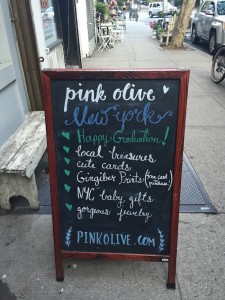 pink olive
New York
Happy Graduation!
local treasures
cute cards
Gingiber Prints (free card w/ purchase)
NYC baby gifts
gorgeous jewelry
PINKOLIVE.COM